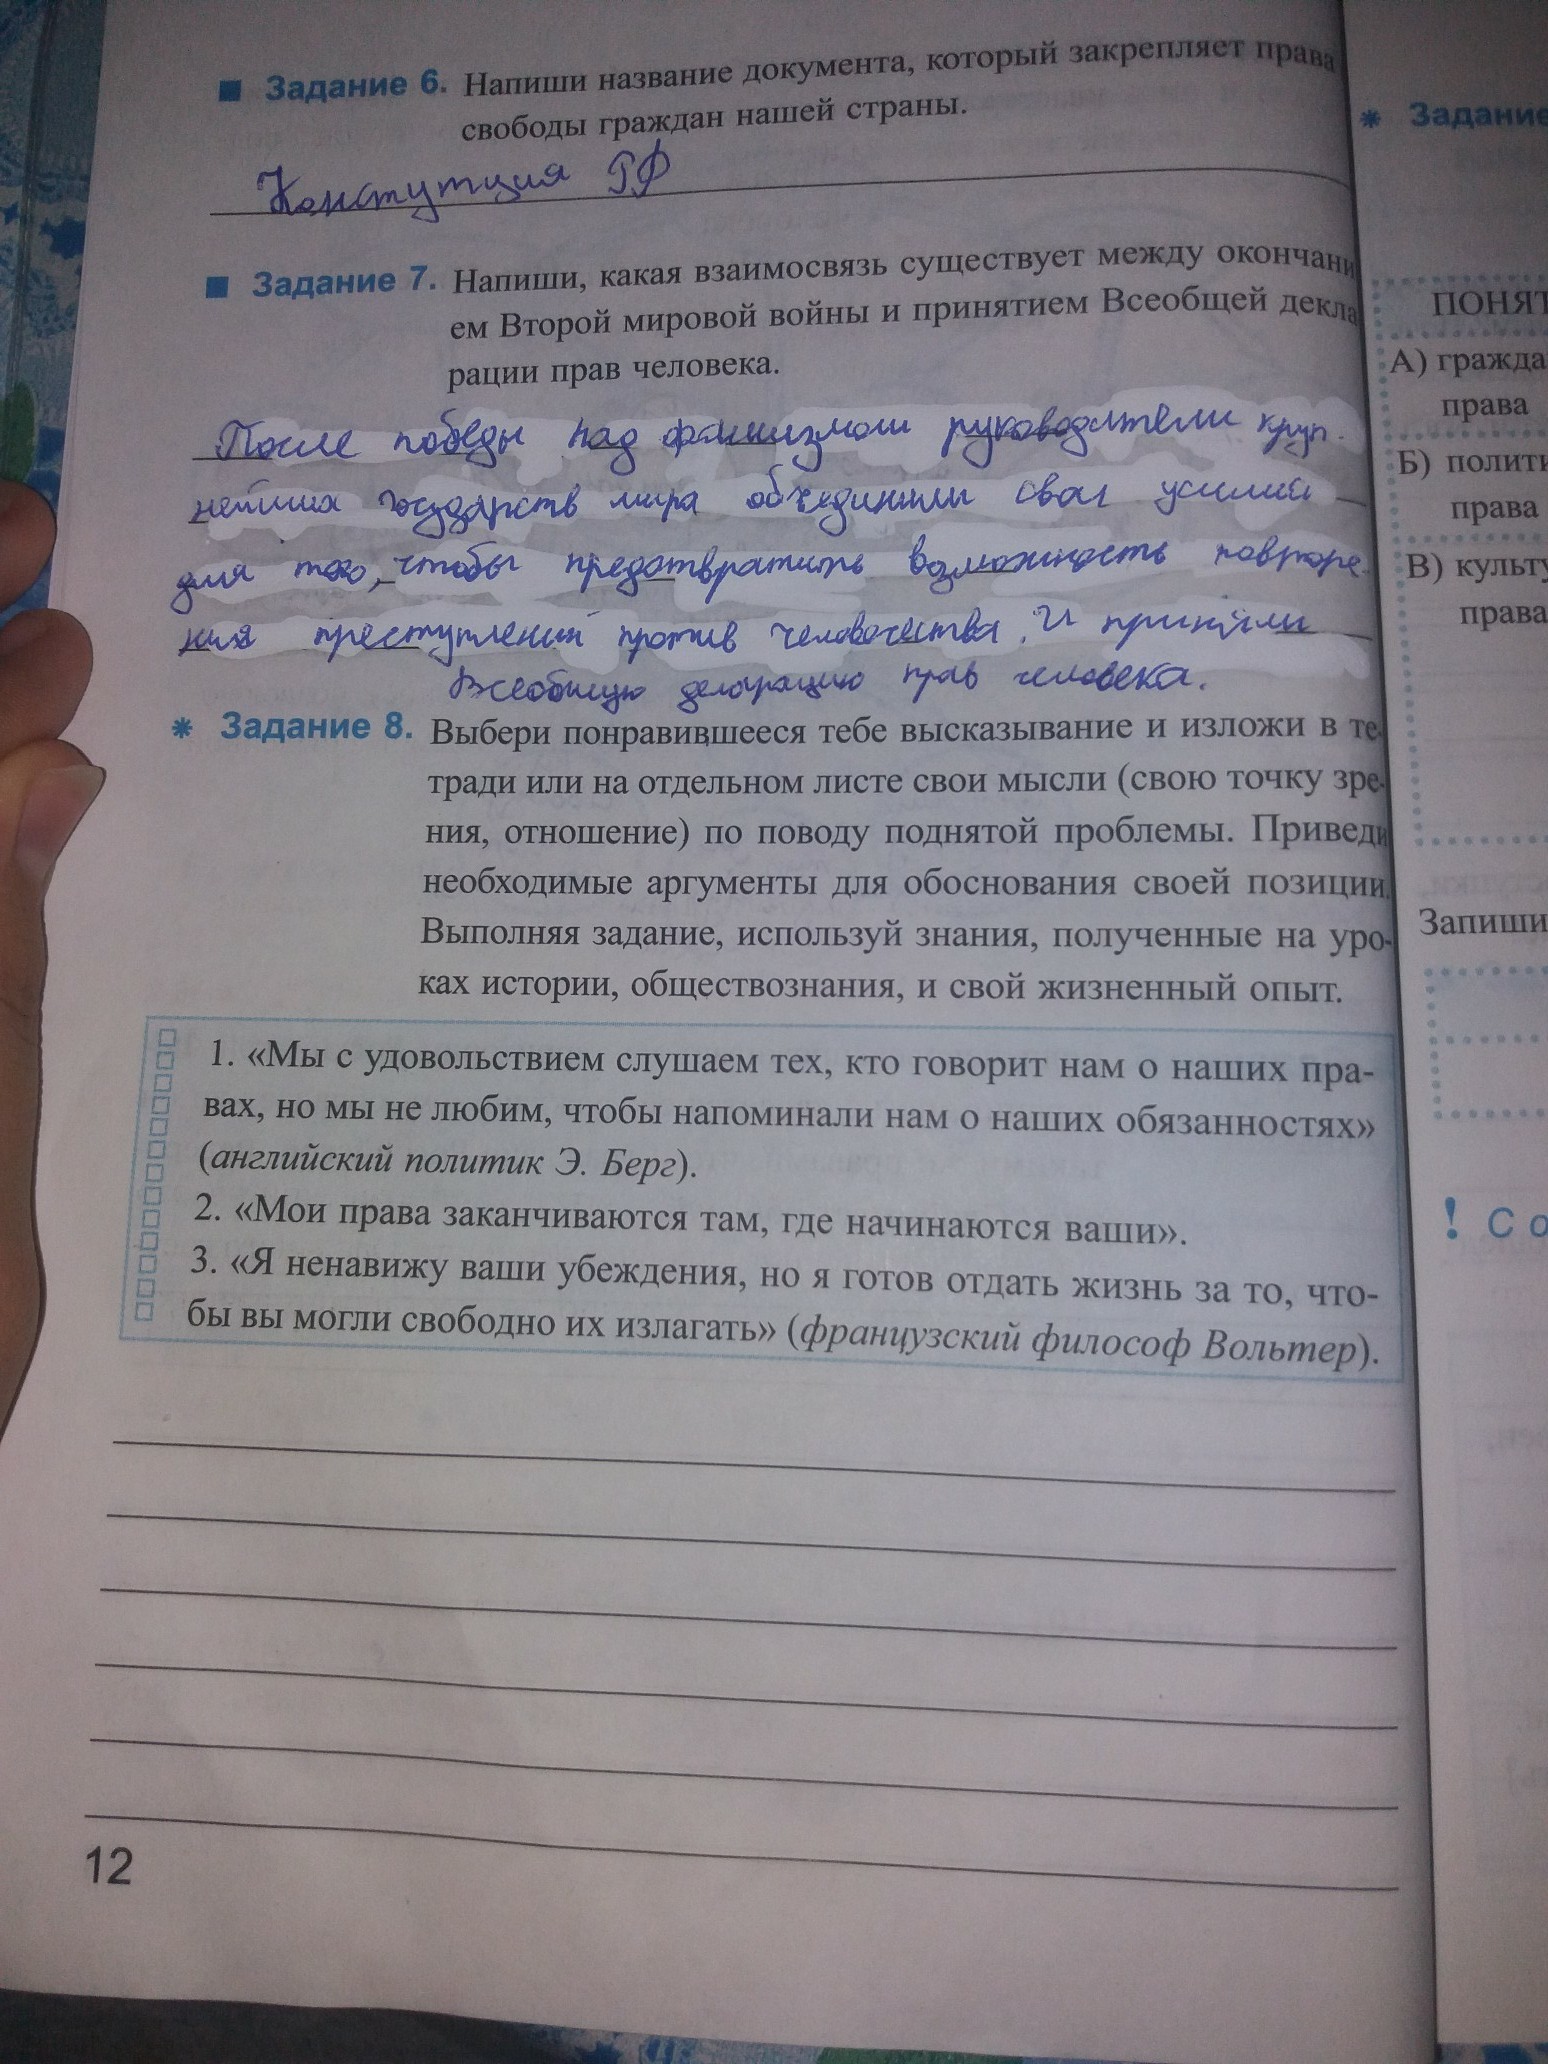 Задание 6. Напиши название документа, который закрепляет права
свободы граждан нашей страны.
Констутция РФ
Задание 7. Напиши, какая взаимосвязь существует между окончани
ем Второй мировой войны и принятием Всеобщей декла
рации прав человека.
После победы над фашизмом руководители круп-
нейших государств мира объединили свои усилия
для того, чтобы предотвратить возможность повторе-
ния преступлений против человечества. И приняли
Всеобщую декларацию прав человека.
Задание 8. Выбери понравившееся тебе высказывание и изложи в те-
тради или на отдельном листе свои мысли (свою точку зре-
ния, отношение) по поводу поднятой проблемы. Приведи
необходимые аргументы для обоснования своей позиции.
Выполняя задание, используй знания, полученные на уро-
ках истории, обществознания, и свой жизненный опыт.
1. «Мы с удовольствием слушаем тех, кто говорит нам о наших пра-
вах, но мы не любим, чтобы напоминали нам о наших обязанностях»
(английский политик Э. Берг).
2. «Мои права заканчиваются там, где начинаются ваши».
3. «Я ненавижу ваши убеждения, но я готов отдать жизнь за то, что-
бы вы могли свободно их излагать» (французский философ Вольтер).
12
Задание
ПОНЯТ
А) гражда
права
Б) полити
права
В) культу
права
Запиши
! Со